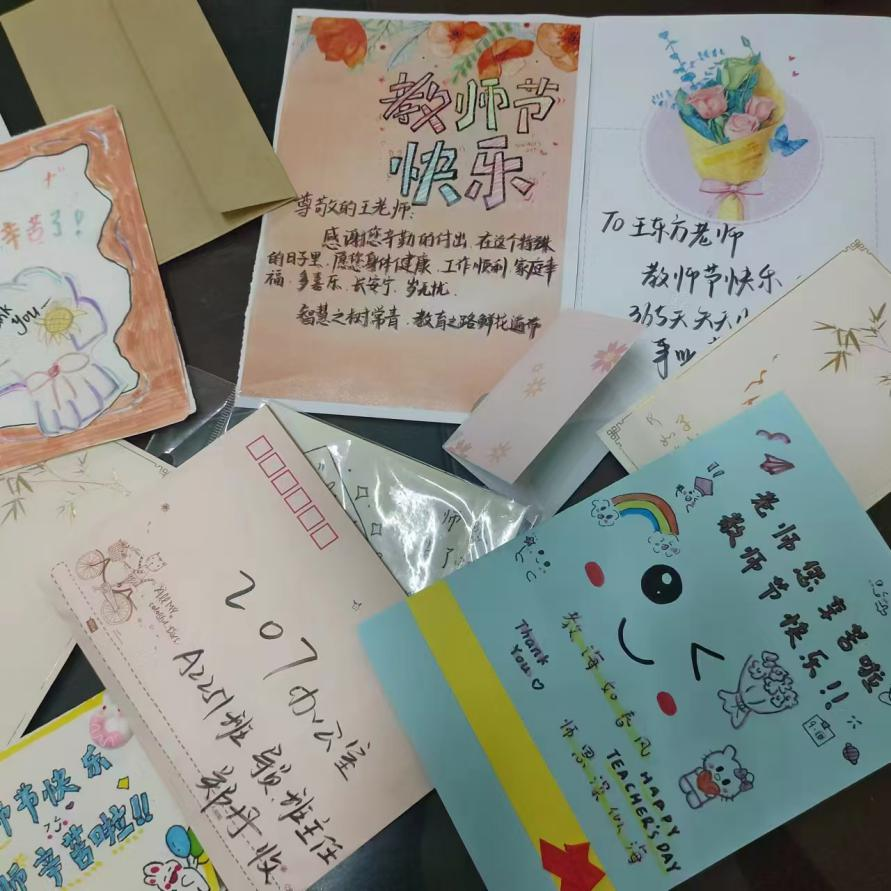 辛苦了!
Thank you
教师节
快乐
尊敬的王老师:
感谢您辛勤的付出,在这个特殊
的日子里,愿您身体健康,工作顺利,家庭幸
福,多喜乐,长安宁,岁无忧.
智慧之树常青,教育之路鲜花遍布
TO 王东方老师
教师节快乐
365天天天
事业
师
了
207办公室
A2251班 班主任
郑丹 收
老师您辛苦啦
教师节快乐!!
Thank
You
教海如春风
师恩深似海
HAPPY
TEACHER'S DAY
9.10
师节快乐
师辛苦啦!!